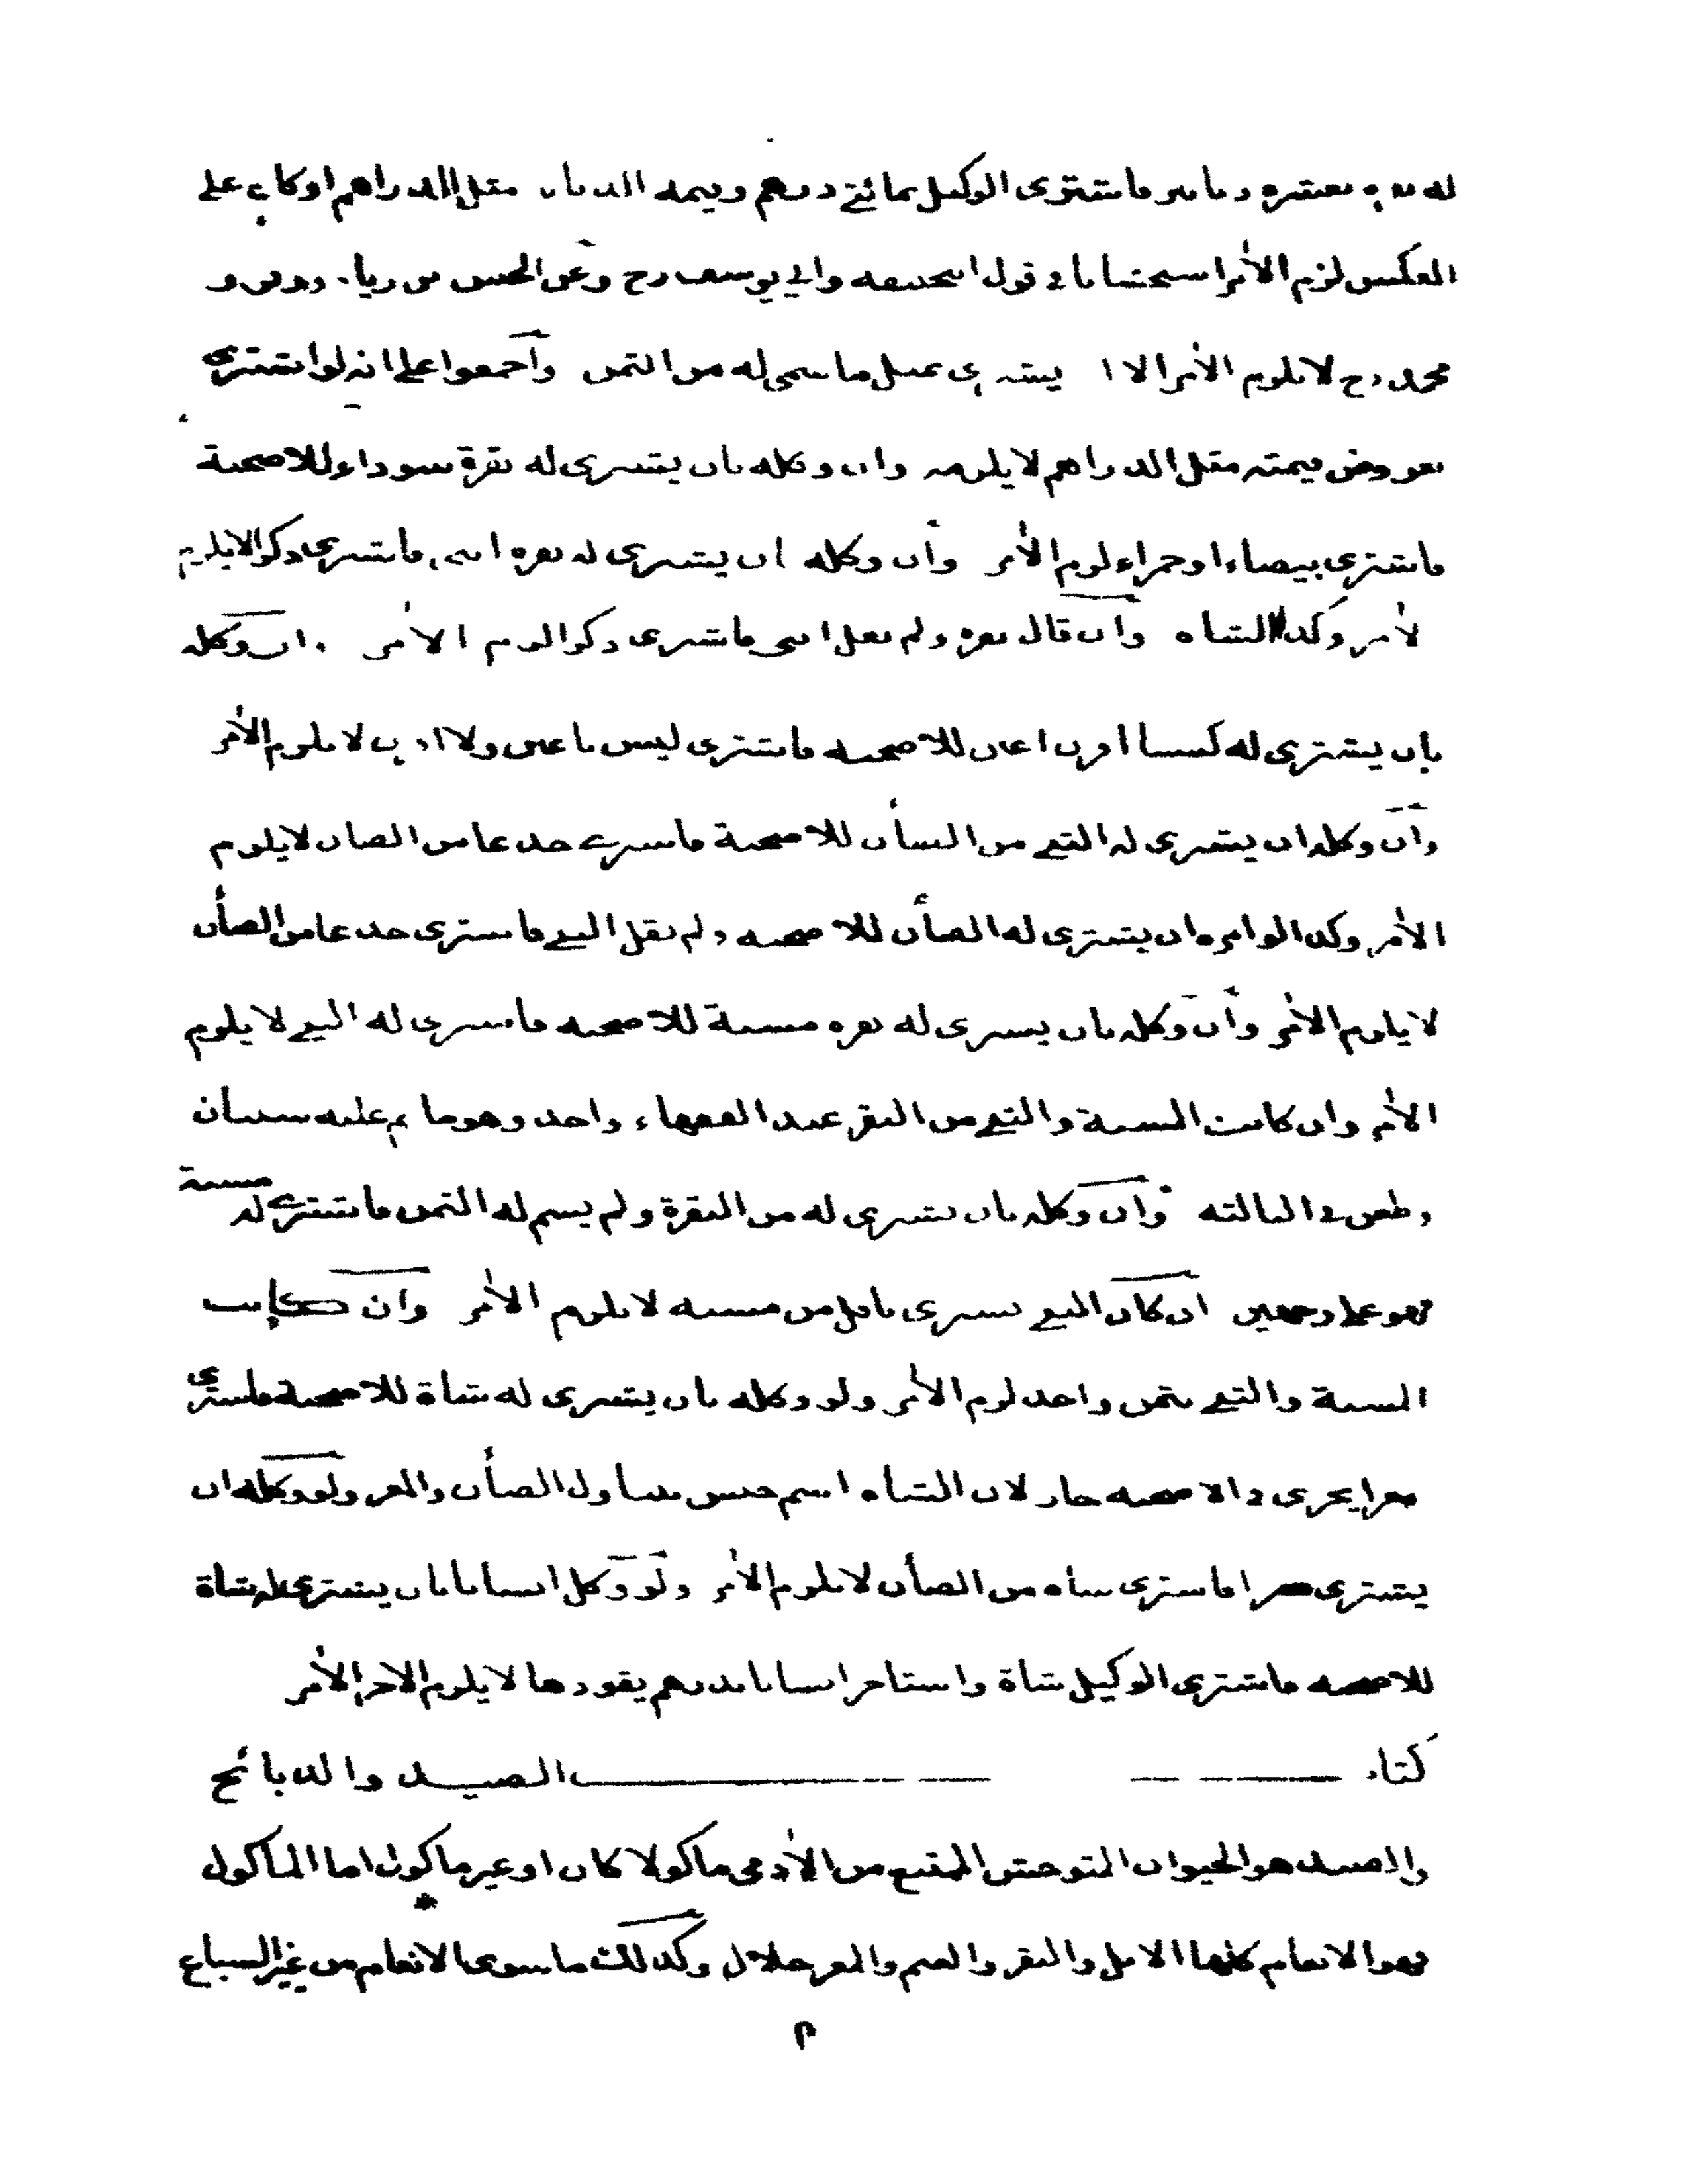 له بقرة بعشرة دنانير فاشترى الوكيل بمائتي درهم وقيمة الدنانير مثل الدراهم او كان على
العكس لزم الأمر استحسانا في قول ابي حنيفة وابي يوسف رح وعن الحسن بن زياد وزفر و
محمد رح لا يلزم الأمر الا ان يشتري بمثل ما سمى له من الثمن وأجمعوا على انه لو اشترى
بعروض قيمته مثل الدراهم لا يلزمه وان وكله بان يشترى له بقرة سوداء للاضحية
فاشترى بيضاء او حمراء لزم الأمر وأن وكله ان يشترى له بقرة انثى فاشترى ذكرا لا يلزم
لأمر وكذا الشاه وأن قال بقرة ولم يقل انثى فاشترى ذكرا لزم الأمر وان وكله
بان يشترى له كبشا اقرن اعين للاضحية فاشترى ليس باعين ولا اقرن لا يلزم الأمر
وأن وكله ان يشترى له الثني من الضأن للاضحية فاشترى جذعا من الضان لا يلزم
الأمر وكذا لو امره ان يشترى له الضأن للاضحيه ولم يقل الثني فاشترى جذعا من الضأن
لا يلزم الأمر وأن وكله بان يشترى له بقرة مسنة للاضحيه فاشترى له الثني لا يلزم
الأمر وان كانت المسنة والثني من البقر عند الفقهاء واحد وهو ما تم عليه سنتان
وطعن في الثالثه وأن وكله بان يشترى له من البقرة ولم يسم له الثمن فاشترى له مسنة
فهو على وجهين ان كان الثني يشترى باقل من مسنه لا يلزم الأمر وان كانت
المسنة والثني بثمن واحد لزم الأمر ولو وكله بان يشترى له شاة للاضحية فاشترى
معزا يجزى في الاضحيه جاز لان الشاه اسم جنس يتناول الضأن والمعز ولو وكله ان
يشترى معزا فاشترى شاه من الضأن لا يلزم الأمر ولو وكل انسانا بان يشترى له شاة
للاضحيه فاشترى الوكيل شاة واستاجر انسانا بدرهم يقودها لا يلزم الاجر الأمر
كتاب الصيد والذبائح
والصيد هو الحيوان المتوحش الممتنع من الأدمى ماكولا كان او غير ماكول اما الماكول
فهو الانعام كلها الابل والبقر والغنم والمعز حلال وكذلك ما سوى الانعام من غير السباع